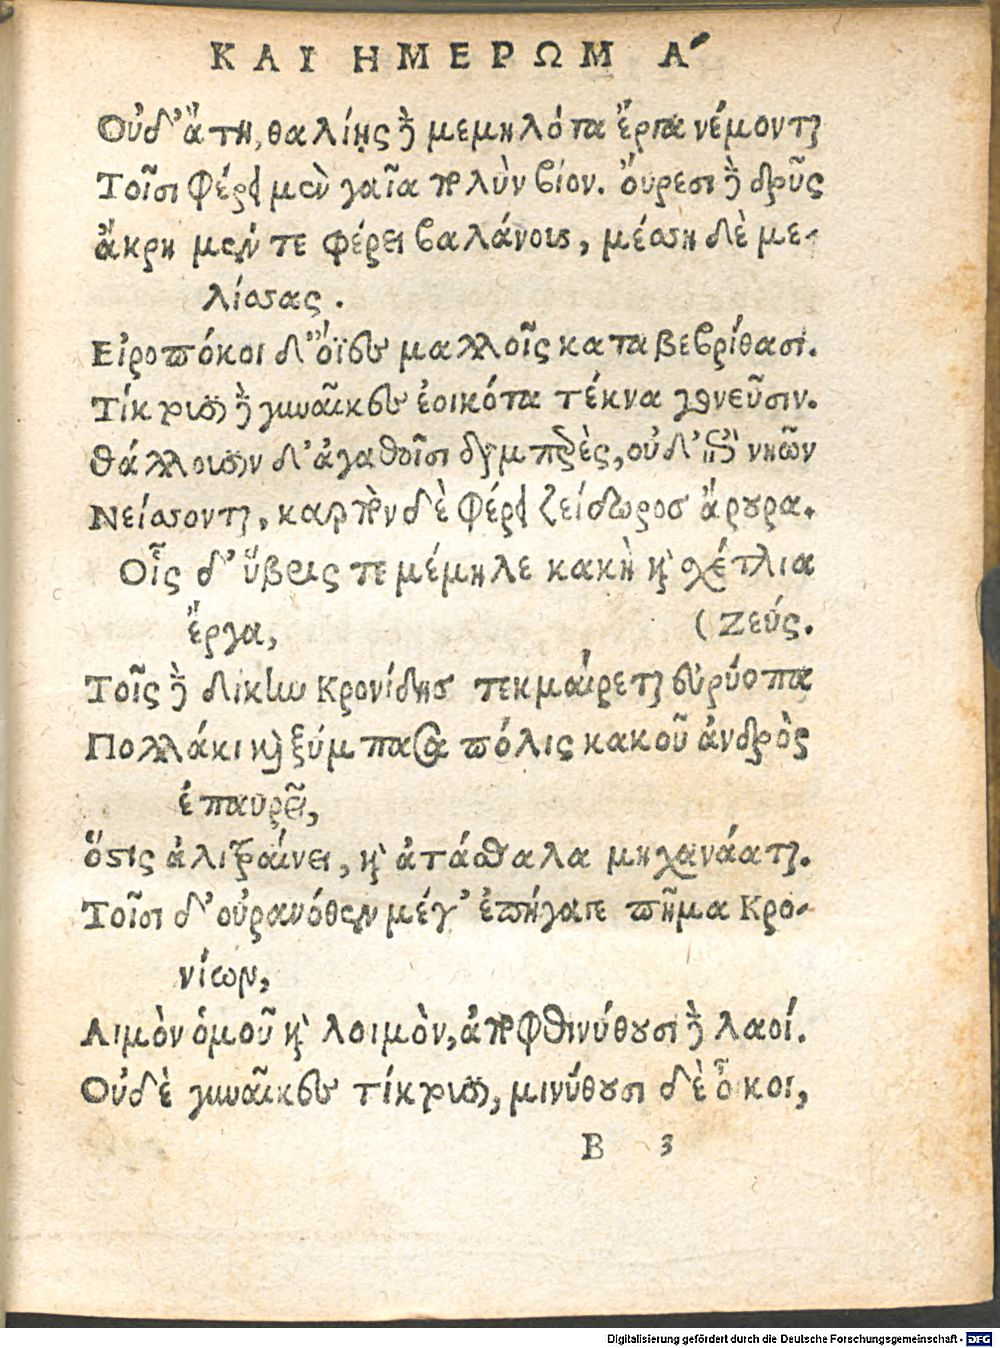 ΚΑΙ ΗΜΕΡΩΜ Α´
Οὐδ' ἄτη, θαλίῃς δὲ μεμηλότα ἔργα νέμονται
Τοῖσι φέρει μὲν γαῖα πολὺν βίον. ὄυρεσι δὲ δρῦς
ἄκρη μέν τε φέρει βαλάνους, μέσση δὲ με-
λίσσας.
Εἰροπόκοι δ' ὄϊες μαλλοῖς καταβεβρίθασι.
Τίκτουσι δὲ γυναῖκες ἐοικότα τέκνα γονεῦσιν.
Θάλλουσιν δ' ἀγαθοῖσι διαμπερὲς, οὐδ' ἐπὶ νηῶν
Νείσσονται, καρπὸν δὲ φέρει ζείδωρος ἄρουρα.
Οἷς δ' ὕβρις τε μέμηλε κακὴ καὶ σχέτλια
ἔργα, (Ζεύς.
Τοῖς δὲ δίκην Κρονίδης τεκμαίρεται εὐρύοπα
Πολλάκι καὶ ξύμπασα πόλις κακοῦ ἀνδρὸς
ἐπαυρεῖ,
ὅστις ἀλιτραίνει, καὶ ἀτάσθαλα μηχανάαται.
Τοῖσι δ' οὐρανόθεν μέγ' ἐπήγαγε πῆμα Κρο-
νίων,
Λιμὸν ὁμοῦ καὶ λοιμὸν, ἀποφθινύθουσι δὲ λαοί.
Οὐδὲ γυναῖκες τίκτουσι, μινύθουσι δὲ οἶκοι,
B 3
Digitalisierung gefördert durch die Deutsche Forschungsgemeinschaft - DFG